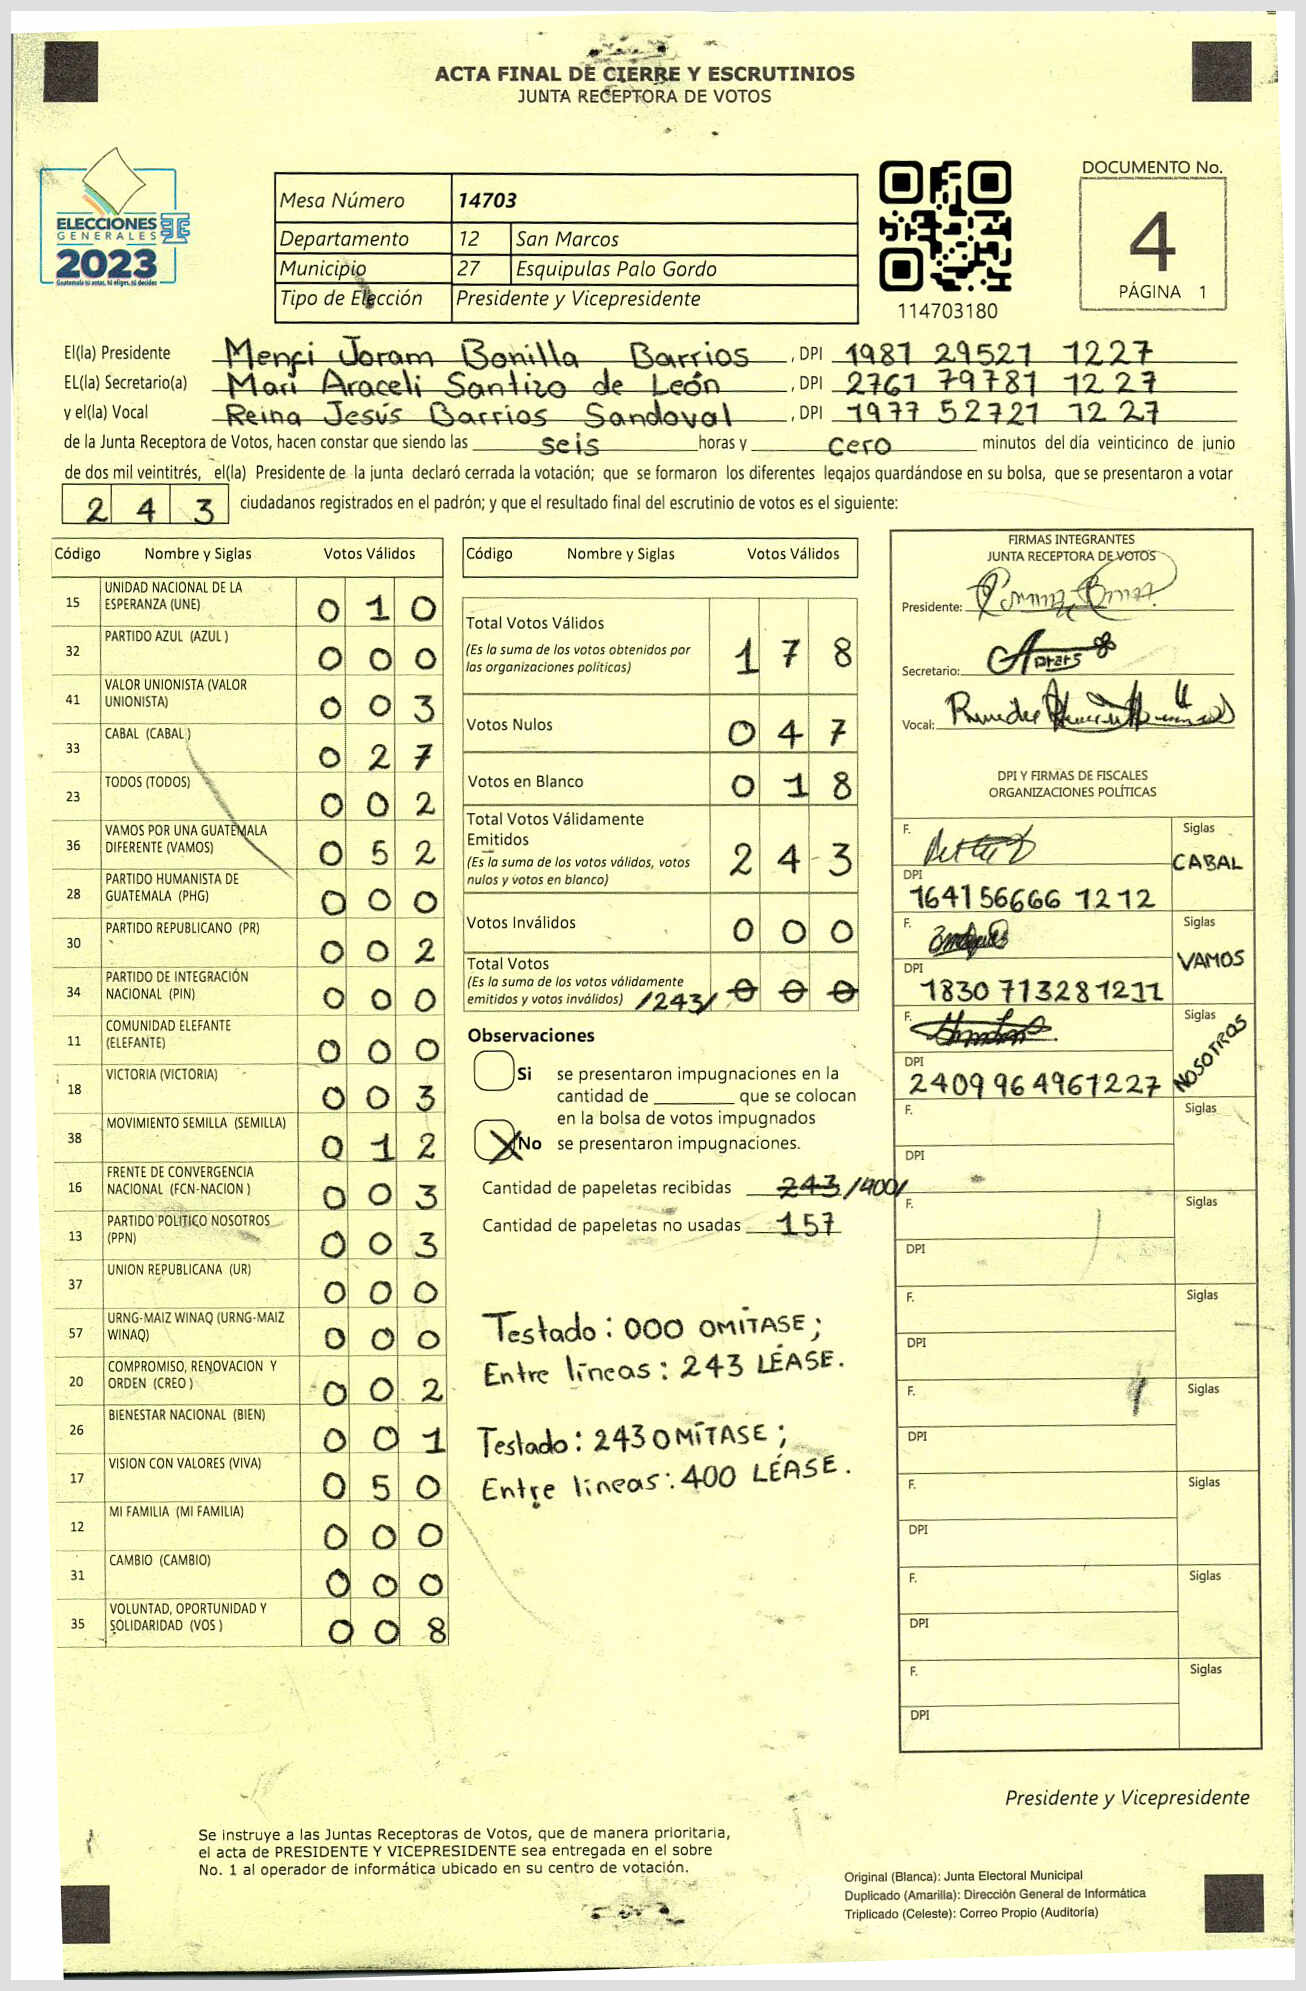 ACTA FINAL DE CIERRE Y ESCRUTINIOS
JUNTA RECEPTORA DE VOTOS
ELECCIONES
GENERALES
2023
Guatemala tú votas, tú eliges, tú decides
Mesa Número 14703
Departamento 12 San Marcos
Municipio 27 Esquipulas Palo Gordo
Tipo de Elección Presidente y Vicepresidente
114703180
DOCUMENTO No.
4
PÁGINA 1
El(la) Presidente Menfi Joram Bonilla Barrios , DPI 1981 29521 1227
EL(la) Secretario(a) Mari Araceli Santizo de León , DPI 2761 79781 1227
y el(la) Vocal Reina Jesús Barrios Sandoval , DPI 1977 52721 1227
de la Junta Receptora de Votos, hacen constar que siendo las seis horas y cero minutos del día veinticinco de junio
de dos mil veintitrés, el(la) Presidente de la junta declaró cerrada la votación; que se formaron los diferentes legajos guardándose en su bolsa, que se presentaron a votar
243 ciudadanos registrados en el padrón; y que el resultado final del escrutinio de votos es el siguiente:
Código Nombre y Siglas Votos Válidos
15 UNIDAD NACIONAL DE LA ESPERANZA (UNE) 0 1 0
32 PARTIDO AZUL (AZUL ) 0 0 0
41 VALOR UNIONISTA (VALOR UNIONISTA) 0 0 3
33 CABAL (CABAL ) 0 2 7
23 TODOS (TODOS) 0 0 2
36 VAMOS POR UNA GUATEMALA DIFERENTE (VAMOS) 0 5 2
28 PARTIDO HUMANISTA DE GUATEMALA (PHG) 0 0 0
30 PARTIDO REPUBLICANO (PR) 0 0 2
34 PARTIDO DE INTEGRACIÓN NACIONAL (PIN) 0 0 0
11 COMUNIDAD ELEFANTE (ELEFANTE) 0 0 0
18 VICTORIA (VICTORIA) 0 0 3
38 MOVIMIENTO SEMILLA (SEMILLA) 0 1 2
16 FRENTE DE CONVERGENCIA NACIONAL (FCN-NACION ) 0 0 3
13 PARTIDO POLITICO NOSOTROS (PPN) 0 0 3
37 UNION REPUBLICANA (UR) 0 0 0
57 URNG-MAIZ WINAQ (URNG-MAIZ WINAQ) 0 0 0
20 COMPROMISO, RENOVACION Y ORDEN (CREO ) 0 0 2
26 BIENESTAR NACIONAL (BIEN) 0 0 1
17 VISION CON VALORES (VIVA) 0 5 0
12 MI FAMILIA (MI FAMILIA) 0 0 0
31 CAMBIO (CAMBIO) 0 0 0
35 VOLUNTAD, OPORTUNIDAD Y SOLIDARIDAD (VOS ) 0 0 8
Código Nombre y Siglas Votos Válidos
Total Votos Válidos
(Es la suma de los votos obtenidos por
las organizaciones políticas) 1 7 8
Votos Nulos 0 4 7
Votos en Blanco 0 1 8
Total Votos Válidamente
Emitidos
(Es la suma de los votos válidos, votos
nulos y votos en blanco) 2 4 3
Votos Inválidos 0 0 0
Total Votos
(Es la suma de los votos válidamente
emitidos y votos inválidos) /243/ 0 0 0
Observaciones
Si se presentaron impugnaciones en la
cantidad de ________ que se colocan
en la bolsa de votos impugnados
X No se presentaron impugnaciones.
Cantidad de papeletas recibidas 243 /400/
Cantidad de papeletas no usadas 157
Testado: 000 OMÍTASE;
Entre líneas: 243 LÉASE.
Testado: 243 OMÍTASE;
Entre líneas: 400 LÉASE.
FIRMAS INTEGRANTES
JUNTA RECEPTORA DE VOTOS
Presidente:
Secretario:
Vocal:
DPI Y FIRMAS DE FISCALES
ORGANIZACIONES POLÍTICAS
F. Siglas
CABAL
DPI
164156666 1212
F. Siglas
VAMOS
DPI
1830 713281211
F. Siglas
NOSOTROS
DPI
2409 964961227
F. Siglas
DPI
F. Siglas
DPI
F. Siglas
DPI
F. Siglas
DPI
F. Siglas
DPI
F. Siglas
DPI
F. Siglas
DPI
Presidente y Vicepresidente
Se instruye a las Juntas Receptoras de Votos, que de manera prioritaria,
el acta de PRESIDENTE Y VICEPRESIDENTE sea entregada en el sobre
No. 1 al operador de informática ubicado en su centro de votación.
Original (Blanca): Junta Electoral Municipal
Duplicado (Amarilla): Dirección General de Informática
Triplicado (Celeste): Correo Propio (Auditoría)